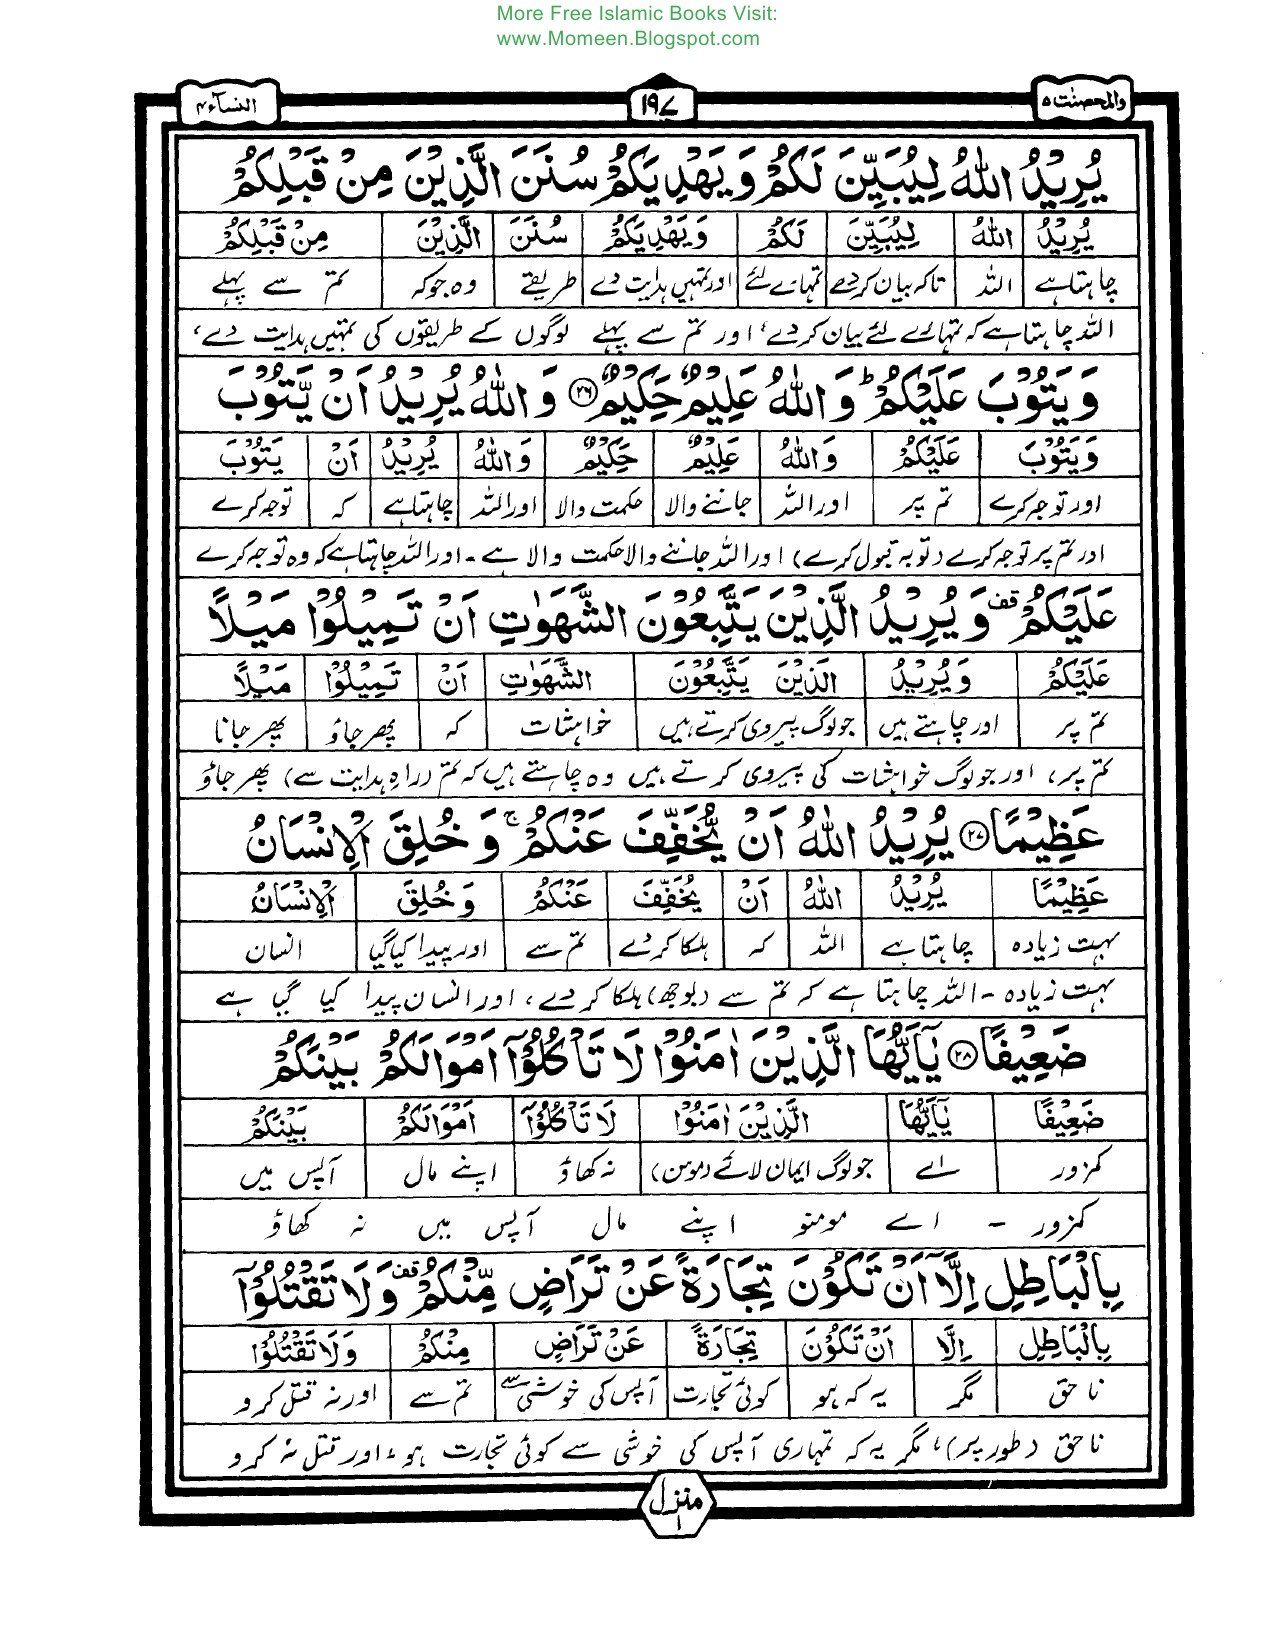 More Free Islamic Books Visit:
www.Momeen.Blogspot.com
والمحصنٰت ۵
۱۹۷
النسآء ۴
يُرِيْدُ اللّٰهُ لِيُبَيِّنَ لَكُمْ وَيَهْدِيَكُمْ سُنَنَ الَّذِيْنَ مِنْ قَبْلِكُمْ
يُرِيْدُ اللّٰهُ لِيُبَيِّنَ لَكُمْ وَيَهْدِيَكُمْ سُنَنَ الَّذِيْنَ مِنْ قَبْلِكُمْ
چاہتا ہے اللہ تاکہ بیان کردے تمہارے لئے اور تمہیں ہدایت دے طریقے وہ جو کہ تم سے پہلے
اللہ چاہتا ہے کہ تمہارے لئے بیان کر دے، اور تم سے پہلے لوگوں کے طریقوں کی تمہیں ہدایت دے،
وَيَتُوْبَ عَلَيْكُمْ ؕ وَاللّٰهُ عَلِيْمٌ حَكِيْمٌ ۝۲۶ وَاللّٰهُ يُرِيْدُ اَنْ يَّتُوْبَ
وَيَتُوْبَ عَلَيْكُمْ وَاللّٰهُ عَلِيْمٌ حَكِيْمٌ وَاللّٰهُ يُرِيْدُ اَنْ يَتُوْبَ
اور توجہ کرے تم پر اور اللہ جاننے والا حکمت والا اور اللہ چاہتا ہے کہ توجہ کرے
اور تم پر توجہ کرے (توبہ قبول کرے) اور اللہ جاننے والا حکمت والا ہے ۔ اور اللہ چاہتا ہے کہ وہ توجہ کرے
عَلَيْكُمْ قف وَيُرِيْدُ الَّذِيْنَ يَتَّبِعُوْنَ الشَّهَوٰتِ اَنْ تَمِيْلُوْا مَيْلًا
عَلَيْكُمْ وَيُرِيْدُ الَّذِيْنَ يَتَّبِعُوْنَ الشَّهَوٰتِ اَنْ تَمِيْلُوْا مَيْلًا
تم پر اور چاہتے ہیں جو لوگ پیروی کرتے ہیں خواہشات کہ پھر جاؤ پھر جانا
تم پر، اور جو لوگ خواہشات کی پیروی کرتے ہیں وہ چاہتے ہیں کہ تم (راہِ ہدایت سے) پھر جاؤ
عَظِيْمًا ۝۲۷ يُرِيْدُ اللّٰهُ اَنْ يُّخَفِّفَ عَنْكُمْ ۚ وَخُلِقَ الْاِنْسَانُ
عَظِيْمًا يُرِيْدُ اللّٰهُ اَنْ يُخَفِّفَ عَنْكُمْ وَخُلِقَ الْاِنْسَانُ
بہت زیادہ چاہتا ہے اللہ کہ ہلکا کردے تم سے اور پیدا کیا گیا انسان
بہت زیادہ ۔ اللہ چاہتا ہے کہ تم سے (بوجھ) ہلکا کر دے، اور انسان پیدا کیا گیا ہے
ضَعِيْفًا ۝۲۸ يٰۤاَيُّهَا الَّذِيْنَ اٰمَنُوْا لَا تَاْكُلُوْۤا اَمْوَالَكُمْ بَيْنَكُمْ
ضَعِيْفًا يٰۤاَيُّهَا الَّذِيْنَ اٰمَنُوْا لَا تَاْكُلُوْۤا اَمْوَالَكُمْ بَيْنَكُمْ
کمزور اے جو لوگ ایمان لائے (مومن) نہ کھاؤ اپنے مال آپس میں
کمزور ۔ اے مومنو اپنے مال آپس میں نہ کھاؤ
بِالْبَاطِلِ اِلَّاۤ اَنْ تَكُوْنَ تِجَارَةً عَنْ تَرَاضٍ مِّنْكُمْ قف وَلَا تَقْتُلُوْۤا
بِالْبَاطِلِ اِلَّا اَنْ تَكُوْنَ تِجَارَةً عَنْ تَرَاضٍ مِنْكُمْ وَلَا تَقْتُلُوْۤا
ناحق مگر یہ کہ ہو کوئی تجارت آپس کی خوشی سے تم سے اور نہ قتل کرو
ناحق (طور پر)، مگر یہ کہ تمہاری آپس کی خوشی سے کوئی تجارت ہو، اور قتل نہ کرو
منزل ۱